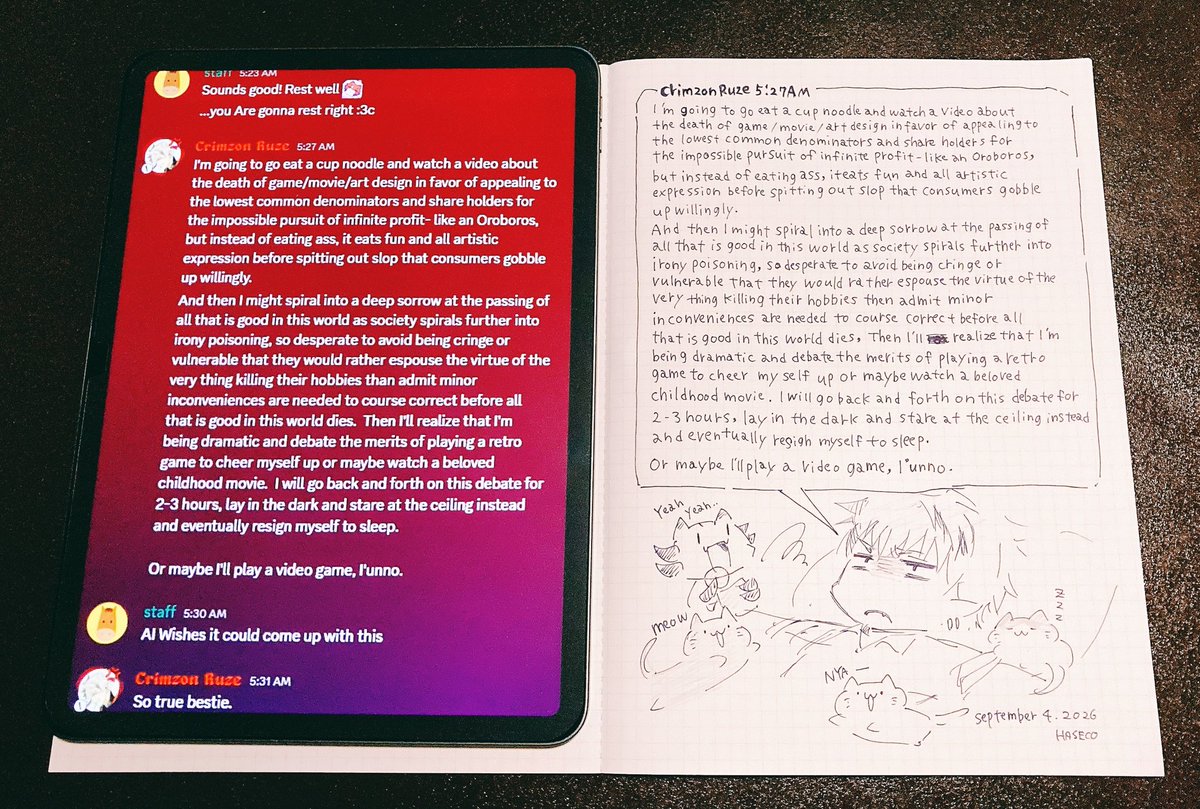 staff 5:23 AM
Sounds good! Rest well
...you Are gonna rest right :3c
Crimzon Ruze 5:27 AM
I'm going to go eat a cup noodle and watch a video about
the death of game/movie/art design in favor of appealing to
the lowest common denominators and share holders for
the impossible pursuit of infinite profit- like an Oroboros,
but instead of eating ass, it eats fun and all artistic
expression before spitting out slop that consumers gobble
up willingly.
And then I might spiral into a deep sorrow at the passing of
all that is good in this world as society spirals further into
irony poisoning, so desperate to avoid being cringe or
vulnerable that they would rather espouse the virtue of the
very thing killing their hobbies than admit minor
inconveniences are needed to course correct before all
that is good in this world dies. Then I'll realize that I'm
being dramatic and debate the merits of playing a retro
game to cheer myself up or maybe watch a beloved
childhood movie. I will go back and forth on this debate for
2-3 hours, lay in the dark and stare at the ceiling instead
and eventually resign myself to sleep.
Or maybe I'll play a video game, I'unno.
staff 5:30 AM
AI Wishes it could come up with this
Crimzon Ruze 5:31 AM
So true bestie.
CrimzonRuze 5:27AM
I'm going to go eat a cup noodle and watch a video about
the death of game/movie/art design in favor of appealing to
the lowest common denominators and share holders for
the impossible pursuit of infinite profit-like an Oroboros,
but instead of eating ass, it eats fun and all artistic
expression before spitting out slop that consumers gobble
up willingly.
And then I might spiral into a deep sorrow at the passing of
all that is good in this world as society spirals further into
irony poisoning, so desperate to avoid being cringe or
vulnerable that they would rather espouse the virtue of the
very thing killing their hobbies then admit minor
inconveniences are needed to course correct before all
that is good in this world dies, Then I'll realize that I'm
being dramatic and debate the merits of playing a retro
game to cheer my self up or maybe watch a beloved
childhood movie. I will go back and forth on this debate for
2-3 hours, lay in the dark and stare at the ceiling instead
and eventually resigh myself to sleep.
Or maybe I'll play a video game, I'unno.
Yeah Yeah..
MEOW
NYA
z z z
september 4. 2026
HASECO